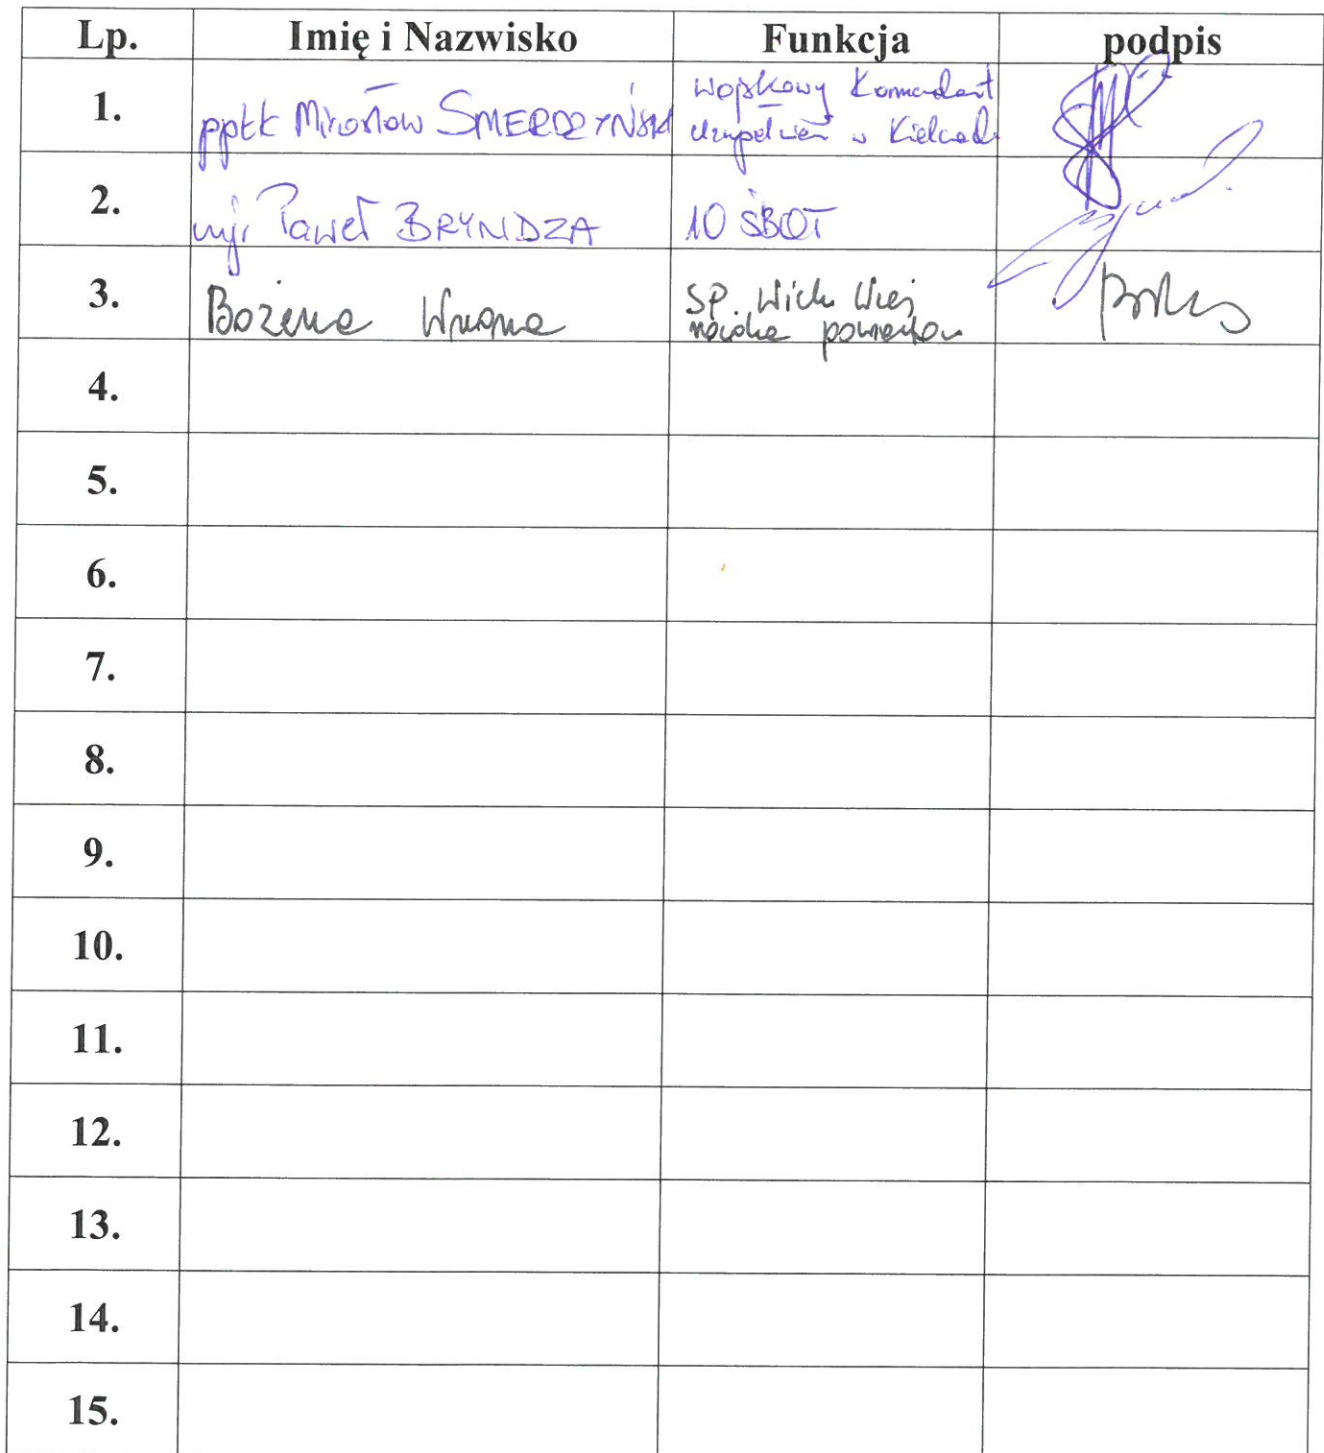 Lp. Imię i Nazwisko Funkcja podpis
1. ppłk Mirosław SMERDZYŃSKI Wojskowy Komendant
Uzupełnień w Kielcach
2. mjr Paweł BRYNDZA 10 ŚBOT
3. Bożena Wrona SP.
4.
5.
6.
7.
8.
9.
10.
11.
12.
13.
14.
15.